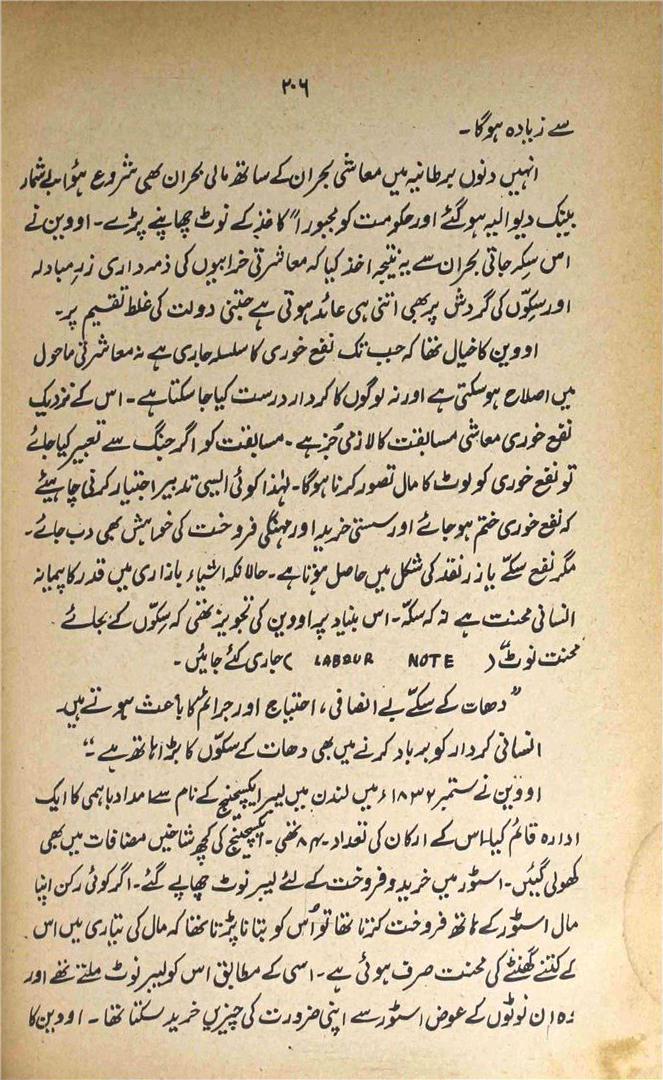 ۲۰۶
سے زیادہ ہوگا۔
انہیں دنوں برطانیہ میں معاشی بحران کے ساتھ مالی بحران بھی شروع ہؤا بے شمار
بینک دیوالیہ ہوگئے اور حکومت کو مجبوراً کاغذ کے نوٹ چھاپنے پڑے۔ اووین نے
اس سِکہ جاتی بحران سے یہ نتیجہ اخذ کیا کہ معاشرتی خرابیوں کی ذمہ داری زرِ مبادلہ
اور سِکّوں کی گردش پر بھی اتنی ہی عائد ہوتی ہے جتنی دولت کی غلط تقسیم پر۔
اووین کا خیال تھا کہ جب تک نفع خوری کا سلسلہ جاری ہے نہ معاشرتی ماحول
میں اصلاح ہوسکتی ہے اور نہ لوگوں کا کردار درست کیا جا سکتا ہے۔ اس کے نزدیک
نفع خوری معاشی مسابقت کا لازمی جُز ہے۔ مسابقت کو اگر جنگ سے تعبیر کیا جائے
تو نفع خوری کو لوٹ کا مال تصور کرنا ہوگا۔ لہٰذا کوئی ایسی تدبیر اختیار کرنی چاہیئے
کہ نفع خوری ختم ہو جائے اور سستی خرید اور مہنگی فروخت کی خواہش بھی دب جائے۔
مگر نفع سکّے یا زرِ نقد کی شکل میں حاصل ہوتا ہے۔ حالانکہ اشیاء بازاری میں قدر کا پیمانہ
انسانی محنت ہے نہ کہ سکہ۔ اس بنیاد پر اووین کی تجویز تھی کہ سِکّوں کے بجائے
محنت نوٹ" (LABOUR NOTE) جاری کئے جائیں۔
"دھات کے سکّے بے انصافی، احتیاج اور جرائم کا باعث ہوتے ہیں۔
انسانی کردار کو برباد کرنے میں بھی دھات کے سکّوں کا بڑا ہاتھ ہے۔"
اووین نے ستمبر ۱۸۳۲ء میں لندن میں لیبر ایکسچینج کے نام سے امداد باہمی کا ایک
ادارہ قائم کیا۔ اس کے ارکان کی تعداد ۸۴۰ تھی۔ ایکسچینج کی کچھ شاخیں مضافات میں بھی
کھولی گئیں۔ اسٹور میں خرید و فروخت کے لئے لیبر نوٹ چھاپے گئے۔ اگر کوئی رکن اپنا
مال اسٹور کے ہاتھ فروخت کرتا تھا تو اُس کو بتانا پڑتا تھا کہ مال کی تیاری میں اس
کے کتنے گھنٹے کی محنت صرف ہوئی ہے۔ اسی کے مطابق اس کو لیبر نوٹ ملتے تھے اور
وہ ان نوٹوں کے عوض اسٹور سے اپنی ضرورت کی چیزیں خرید سکتا تھا۔ اووین کا